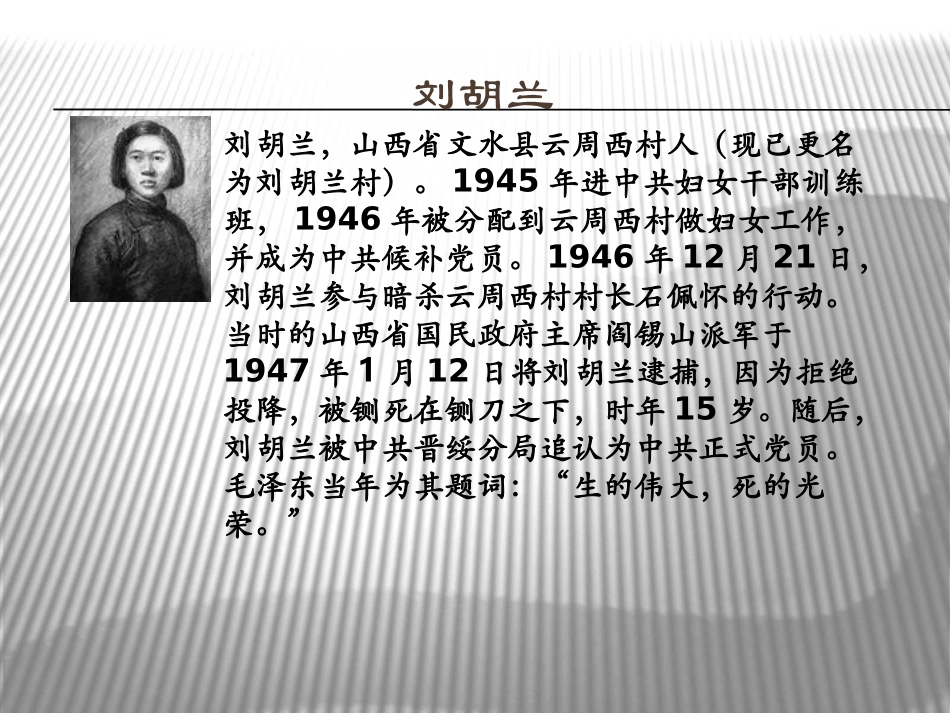 刘胡兰
刘胡兰，山西省文水县云周西村人（现已更名
为刘胡兰村）。 1945 年进中共妇女干部训练
班， 1946 年被分配到云周西村做妇女工作，
并成为中共候补党员。 1946 年 12 月 21 日，
刘胡兰参与暗杀云周西村村长石佩怀的行动。
当时的山西省国民政府主席阎锡山派军于
1947 年 1 月 12 日将刘胡兰逮捕，因为拒绝
投降，被铡死在铡刀之下，时年 15 岁。随后，
刘胡兰被中共晋绥分局追认为中共正式党员。
毛泽东当年为其题词：“生的伟大，死的光
荣。”